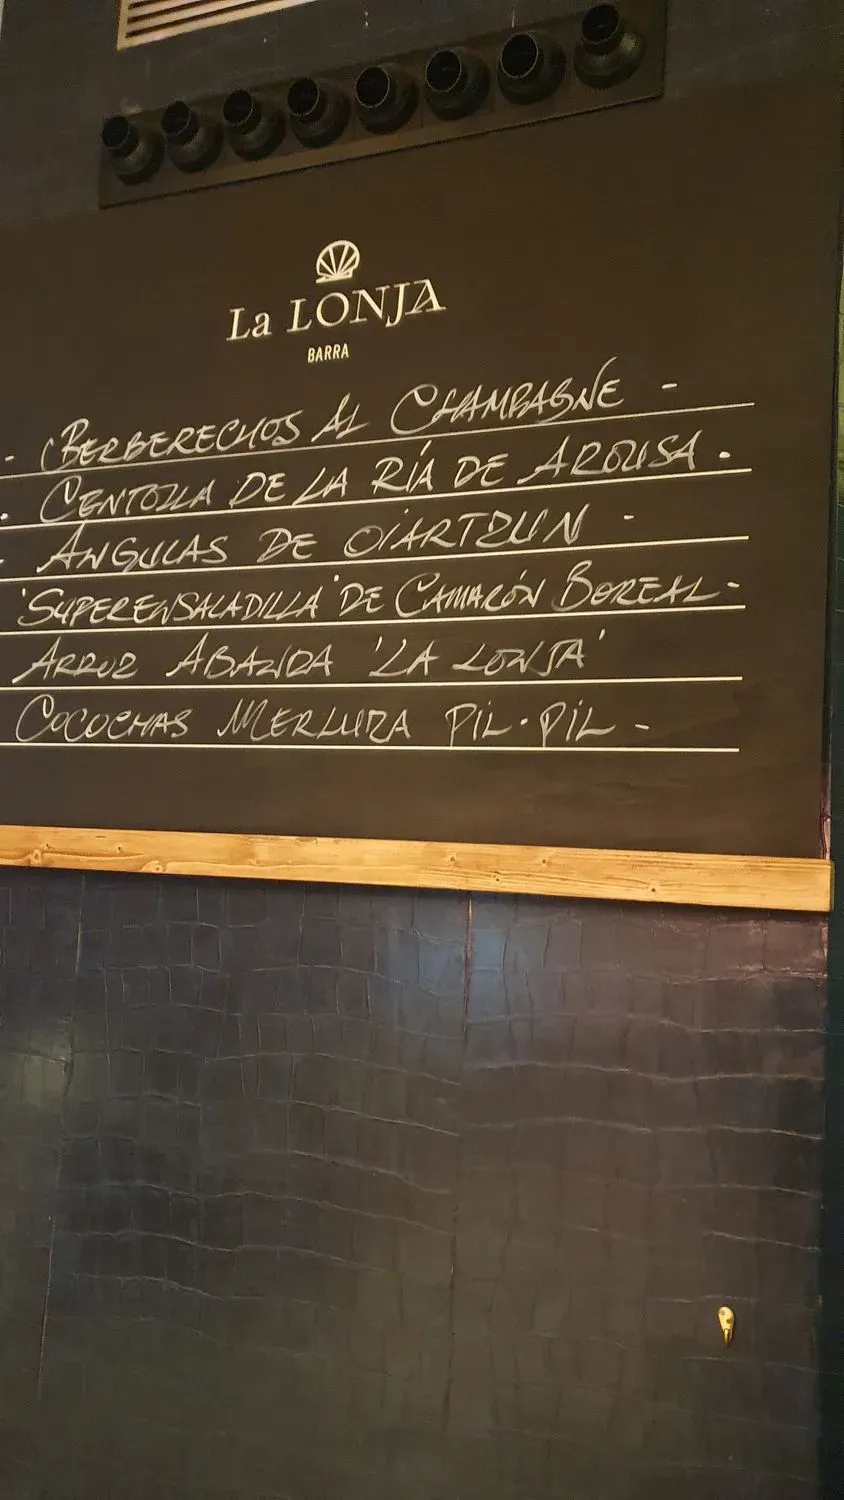 La LONJA
BARRA
- BERBERECHOS AL CHAMPAGNE -
. CENTOLLA DE LA RÍA DE AROUSA .
- ANGULAS DE OIARTZUN -
'SUPERENSALADILLA' DE CAMARÓN BOREAL -
ARROZ ABANDA 'LA LONJA'
COCOCHAS MERLUZA PIL-PIL -